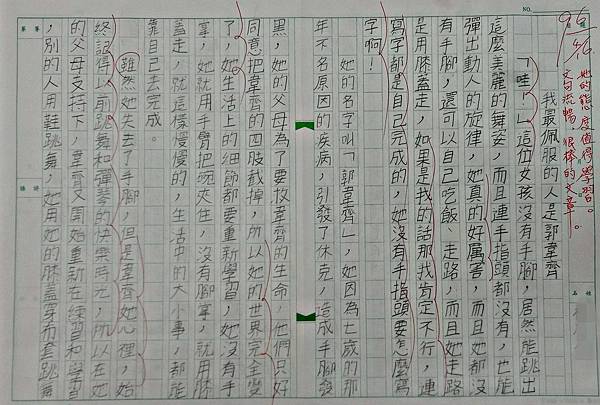 NO.
96
她的態度值得學習。
文句流暢，很棒的文章。
我最佩服的人是郭韋齊
「哇！」這位女孩沒有手腳，居然能跳出
這麼美麗的舞姿，而且連手指頭都沒有，也能
彈出動人的旋律，她真的好厲害，而且她都沒
有手腳，還可以自己吃飯、走路，而且她走路
是用膝蓋走，如果是我的話那我肯定不行，連
寫字都是自己完成的，她沒有手指頭要怎麼寫
字啊！
她的名字叫「郭韋齊」，她因為七歲的那
年不名原因的疾病，引發了休克，造成手腳發
黑，她的父母為了要救韋齊的生命，他們只好
同意把韋齊的四肢截掉，所以她的世界完全變
了，她生活上的細節都要重新學習，她沒有手
掌，她就用手臂把碗夾住，沒有腳掌，就用膝
蓋走，就這樣慢慢的，生活中的大小事，都能
靠自己去完成。
雖然她失去了手腳，但是韋齊她心裡，始
終記得以前跳舞和彈琴的快樂時光，所以在她
的父母支持下，韋齊又開始重新在練習和學習
，別的人用鞋跳舞，她用她的膝蓋穿布套跳舞